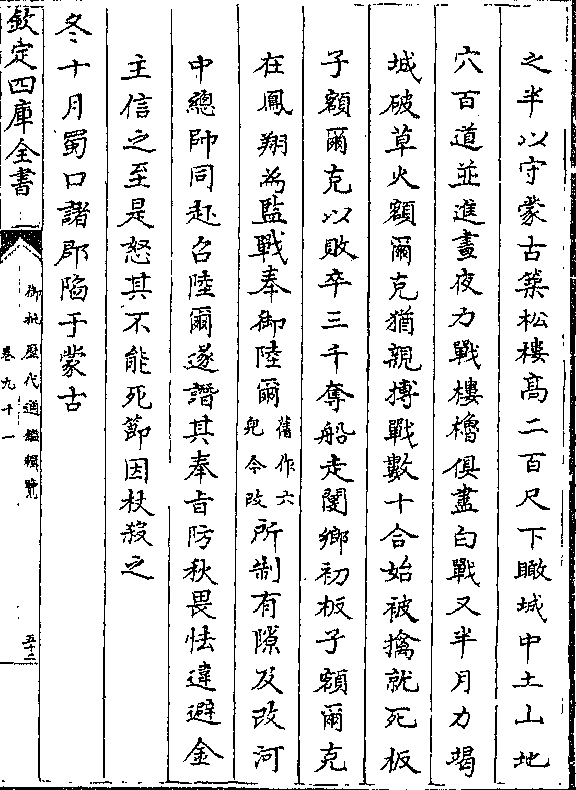 之半以守蒙古築松樓高二百尺下瞰城中土山地
穴百道並進晝夜力戰樓櫓俱盡白戰又半月力竭
城破草火額爾克猶親搏戰數十合始被擒就死板
子額爾克以敗卒三千奪船走閿鄉初板子額爾克
在鳳翔為監戰奉御陸爾舊作六兒今改所制有隙及改河
中總帥同赴召陸爾遂譖其奉旨防秋畏怯違避金
主信之至是怒其不能死節因杖殺之
冬十月蜀口諸郡陷于蒙古
欽定四庫全書
御批歷代通鑑輯覽
卷九十一
五十二